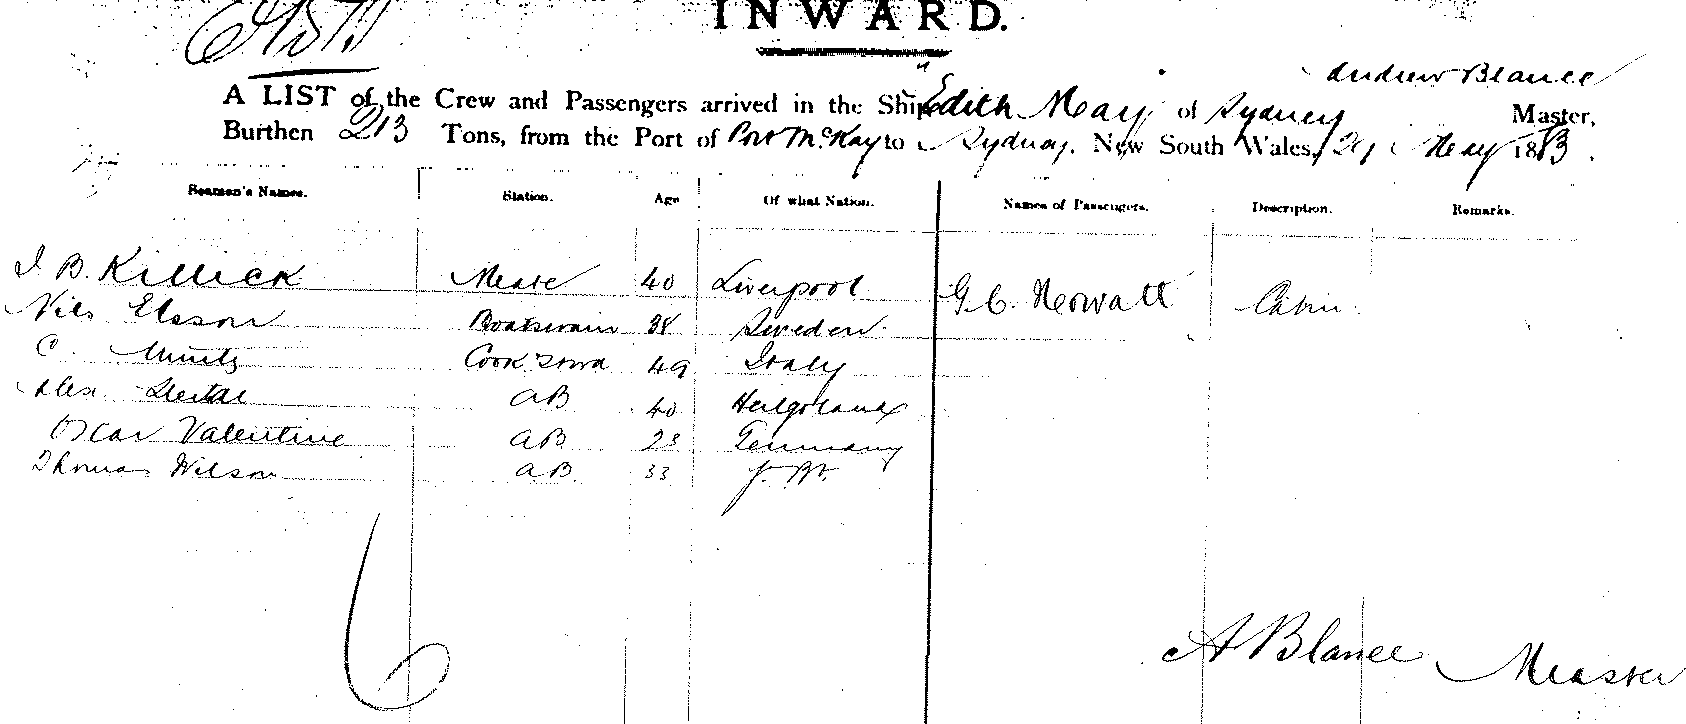 INWARD.
Andrew Blance
A LIST of the Crew and Passengers arrived in the Ship "Edith May of Sydney Master,
Burthen 213 Tons, from the Port of Port McKay to Sydney, New South Wales, 29 May 1883.
Seamen's Names. Station. Age Of what Nation. Names of Passengers. Description. Remarks.
J. B. Killick Mate 40 Liverpool G. C. Cabin
Nils Elsson Boatswain 38 Sweden
C. Cook & Stwd 49 Italy
Alex AB 40 Heligoland
Oscar Valentine AB 28 Germany
Thomas Wilson AB 33
6
A Blance Master